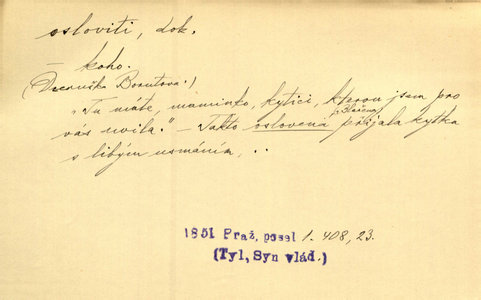 osloviti, dok.
— koho.
(Dceruška Borutova.)
"Tu máte, maminko, kytici, kterou jsem pro
vás uvila." — Takto oslovená přijala kytka
s libým usmáním, ..
1851 Praž. posel 1. 408, 23.
(Tyl, Syn vlád.)